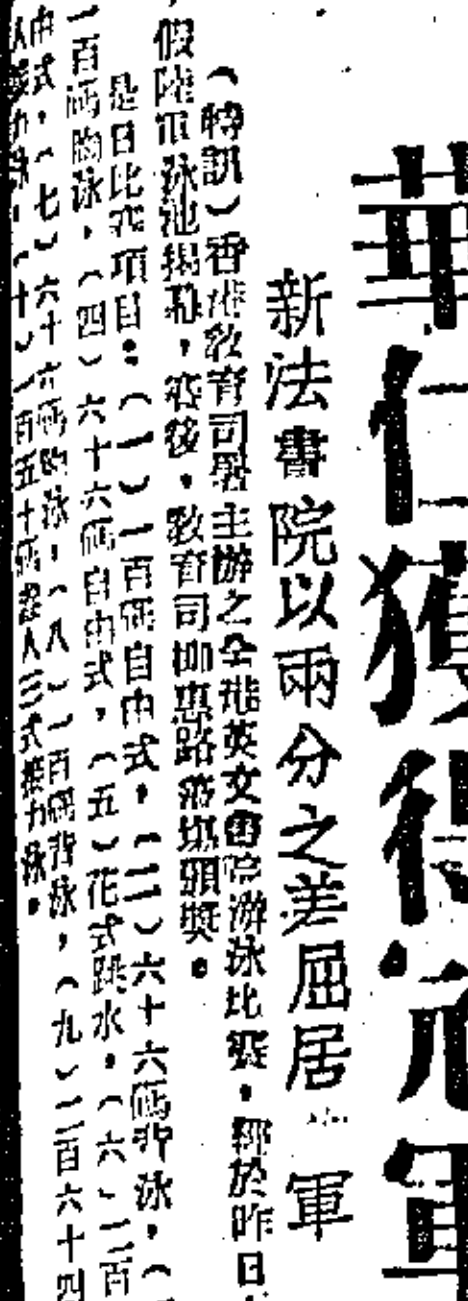 華仁獲得冠軍
新法書院以兩分之差屈居 軍
（特訊）香港敎育司署主辦之全港英文書院游泳比賽，經於昨日
假陸軍泳池揭幕，賽後，敎育司 惠路 頒奬。
是日比賽項目：（一）一百碼自由式，（二）六十六碼背泳，（
一百碼胸泳，（四）六十六碼自由式，（五）花式跳水，（六）二百
由式，（七）六十六碼胸泳，（八）一百碼背泳，（九）二百六十四
人接力泳，（十）一百五十碼 人三式接力泳。